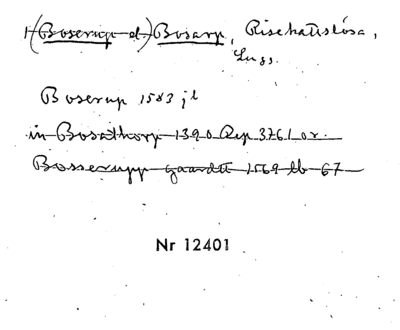 1 (Boserup d.) Bosarp, Risekatslösa,
Lugg.
Boserup 1583 jb
in Bosathorp 1390 Rep 3761 or.
Bosserupp gaardt 1569 lb 67
Nr 12401